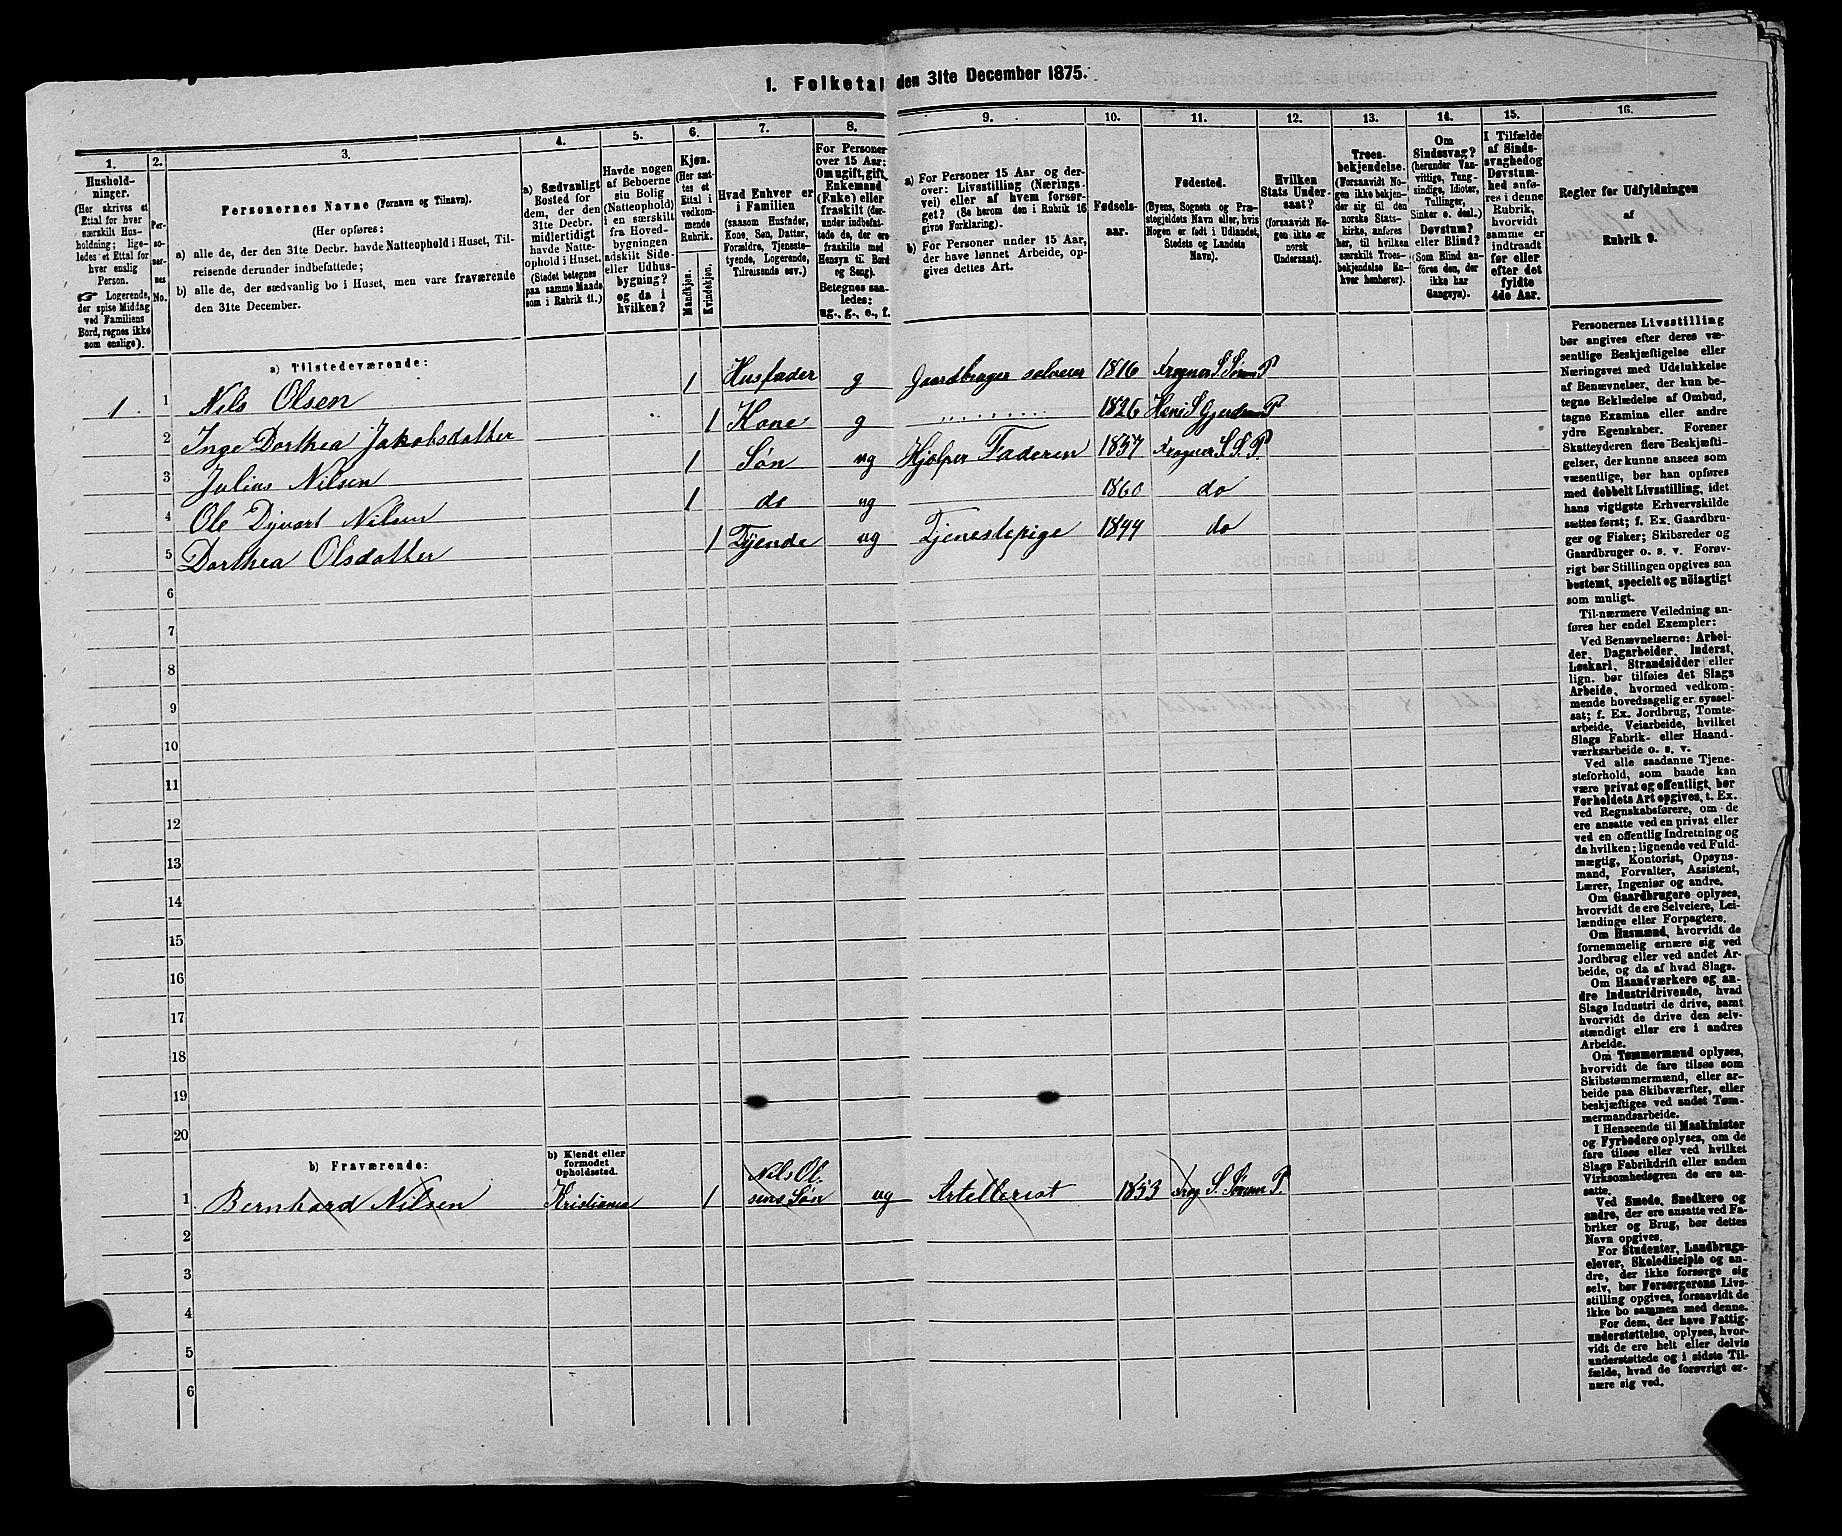 1. Folketal den 31te December 1875.
1.
Hushold-
ninger.
(Her skrives et
Ettal for hver
særskilt Hus-
holdning; lige-
ledes et Ettal for
hver enslig
Person.
☞ Logerende,
der spise Middag
ved Familiens
Bord, regnes ikke
som enslige).
2.
Per-
so-
ner-
nes
No.
3.
Personernes Navne (Fornavn og Tilnavn).
(Her opføres:
a) alle de, der den 31te Decbr. havde Natteophold i Huset, Til-
reisende derunder indbefattede;
b) alle de, der sædvanlig bo i Huset, men vare fraværende
den 31te December.
4.
a) Sædvanligt
Bosted for
dem, der den
31te Decbr.
midlertidigt
havde Natte-
ophold i Huset.
(Stedet betegnes
paa samme Maade
som i Rubrik 11.)
5.
Havde nogen
af Beboerne
sin Bolig
(Natteophold)
i en særskilt
fra Hoved-
bygningen
adskilt Side-
eller Udhus-
bygning?
og da i
hvilken?
6.
Kjøn.
(Her sæt-
tes et
Ettal i
vedkom-
mende
Rubrik.
Mandkjøn.
Kvindekjøn.
7.
Hvad Enhver er
i Familien
(saasom Husfader,
Kone, Søn, Datter,
Forældre, Tjeneste-
tyende, Logerende,
Tilreisende osv.)
8.
For Personer
over 15 Aar:
Om ugift, gift,
Enkemand
(Enke) eller
fraskilt (der-
under indbefat-
tede de, der ere
fraskilte med
Hensyn til Bord
og Seng).
Betegnes saa-
ledes:
ug., g., e., f.
9.
a) For Personer 15 Aar og der-
over: Livsstilling (Nærings-
vei) eller af hvem forsør-
get? (Se herom den i Rubrik 16
givne Forklaring).
b) For Personer under 15 Aar,
der have lønnet Arbeide, op-
gives dettes Art.
10.
Fødsels-
aar.
11.
Fødested.
(Byens, Sognets og Præ-
stegjeldets Navn eller, hvis
Nogen er født i Udlandet,
Stedets og Landets
Navn).
12.
Hvilken
Stats Under-
saat?
(forsaavidt No-
gen ikke er
norsk
Undersaat).
13.
Troes-
bekjendelse.
(Forsaavidt No-
gen ikke bekjen-
der sig til den
norske Stats-
kirke, anføres
her, til hvilken
særskilt Troes-
bekjendelse En-
hver henhører).
14.
Om
Sindssvag?
(herunder Van-
vittige, Tung-
sindige, Idioter,
Tullinger,
Sinker o. desl.)
Døvstum?
eller Blind?
(Som Blind an-
føres den, der
ikke har
Gangsyn).
15.
I Tilfælde
af Sinds-
svaghed og
Døvstum-
hed anfø-
res i denne
Rubrik,
hvorvidt
samme er
indtraadt
før eller
efter det
fyldte
4de Aar.
16.
Regler for Udfyldningen
af
Rubrik 9.
a) Tilstedeværende:
1 1 Nils Olsen 1 Husfader g Gaardbruger selveier 1816 Krogner S Sørum P
2 Inge Dorthea Jakobsdatter 1 Kone g " " " " " 1826 Heni S Gjerdrum P
3 Julius Nilsen 1 Søn ug Hjælper Faderen 1857 Krogner S. S. P.
4 Ole Dyvart Nilsen 1 do ug 1860 do
5 Dorthea Olsdatter 1 Tyende ug Tjenestepige 1844 do
6
7
8
9
10
11
12
13
14
15
16
17
18
19
20
b) Fraværende:
b) Kjendt eller
formodet
Opholdssted.
1 Bernhard Nilsen Kristiania 1 Nils Ol-
sens Søn ug Artellerist 1853 Krog S. Sørum P.
2
3
4
5
6
Personernes Livsstilling
bør angives efter deres væ-
sentlige Beskjæftigelse eller
Næringsvei med Udelukkelse
af Benævnelser, der kun be-
tegne Beklædelse af Ombud,
tagne Examina eller andre
ydre Egenskaber. Forener
Skatteyderen flere Beskjæfti-
gelser, der kunne ansees som
væsentlige, bør han opføres
med dobbelt Livsstilling, idet
hans vigtigste Erhvervskilde
sættes først; f. Ex. Gaardbru-
ger og Fisker; Skibsreder og
Gaardbruger o. s. v. Forøv-
rigt bør Stillingen opgives saa
bestemt, specielt og nöiagtigt
som muligt.
Til nærmere Veiledning an-
føres her endel Exempler:
Ved Benævnelserne: Arbei-
der, Dagarbeider, Inderst,
Løskarl, Strandsidder eller
lign. bør tilføies det Slags
Arbeide, hvormed vedkom-
mende hovedsagelig er syssel-
sat; f. Ex. Jordbrug, Tomte-
arbeide, Veiarbeide, hvilket
Slags Fabrik- eller Haand-
værksarbeide o. s. v.
Ved alle saadanne Tjene-
steforhold, som baade kan
være privat og offentligt, bør
Forholdets Art opgives, t. Ex.
ved Regnskabsførere, om de
ere ansatte ved en privat eller
ved en offentlig Indretning og
da hvilken; lignende ved Fuld-
mægtig, Kontorist, Opsyns-
mand, Forvalter, Assistent,
Lærer, Ingeniør og andre.
Om Gaardbrugere oplyses,
hvorvidt de ere Selveiere, Lei-
lændinge eller Forpagtere.
Om Husmænd, hvorvidt de
fornemmelig ernære sig ved
Jordbrug eller ved andet Ar-
beide, og da af hvad Slags.
Om Haandværkere og an-
dre Industridrivende, hvad
Slags Industri de drive, samt
hvorvidt de drive den selv-
stændigt eller ere i andres
Arbeide.
Om Tømmermænd oplyses,
hvorvidt de fare tilsøs som
Skibstømmermænd, eller ar-
beide paa Skibsværfter, eller
beskjæftiges ved andet Tøm-
mermandsarbeide.
I Henseende til Maskinister
og Fyrbødere oplyses, om de
fare tilsøs eller ved hvilket
Slags Fabrikdrift eller anden
Virksomhedsgren de ere an-
satte.
Ved Smede, Snedkere og
andre, der ere ansatte ved Fa-
briker og Brug, bør dettes
Navn opgives.
For Studenter, Landbrugs-
elever, Skoledisciple og an-
dre, der ikke forsørge sig
selv, bør Forsørgerens Livs-
stilling opgives, forsaavidt de
ikke bo sammen med denne.
For dem, der have Fattig-
understøttelse, oplyses, hvor-
vidt de ere helt eller delvis
understøttede og i sidste Til-
fælde, hvad de forøvrigt er-
nære sig ved.